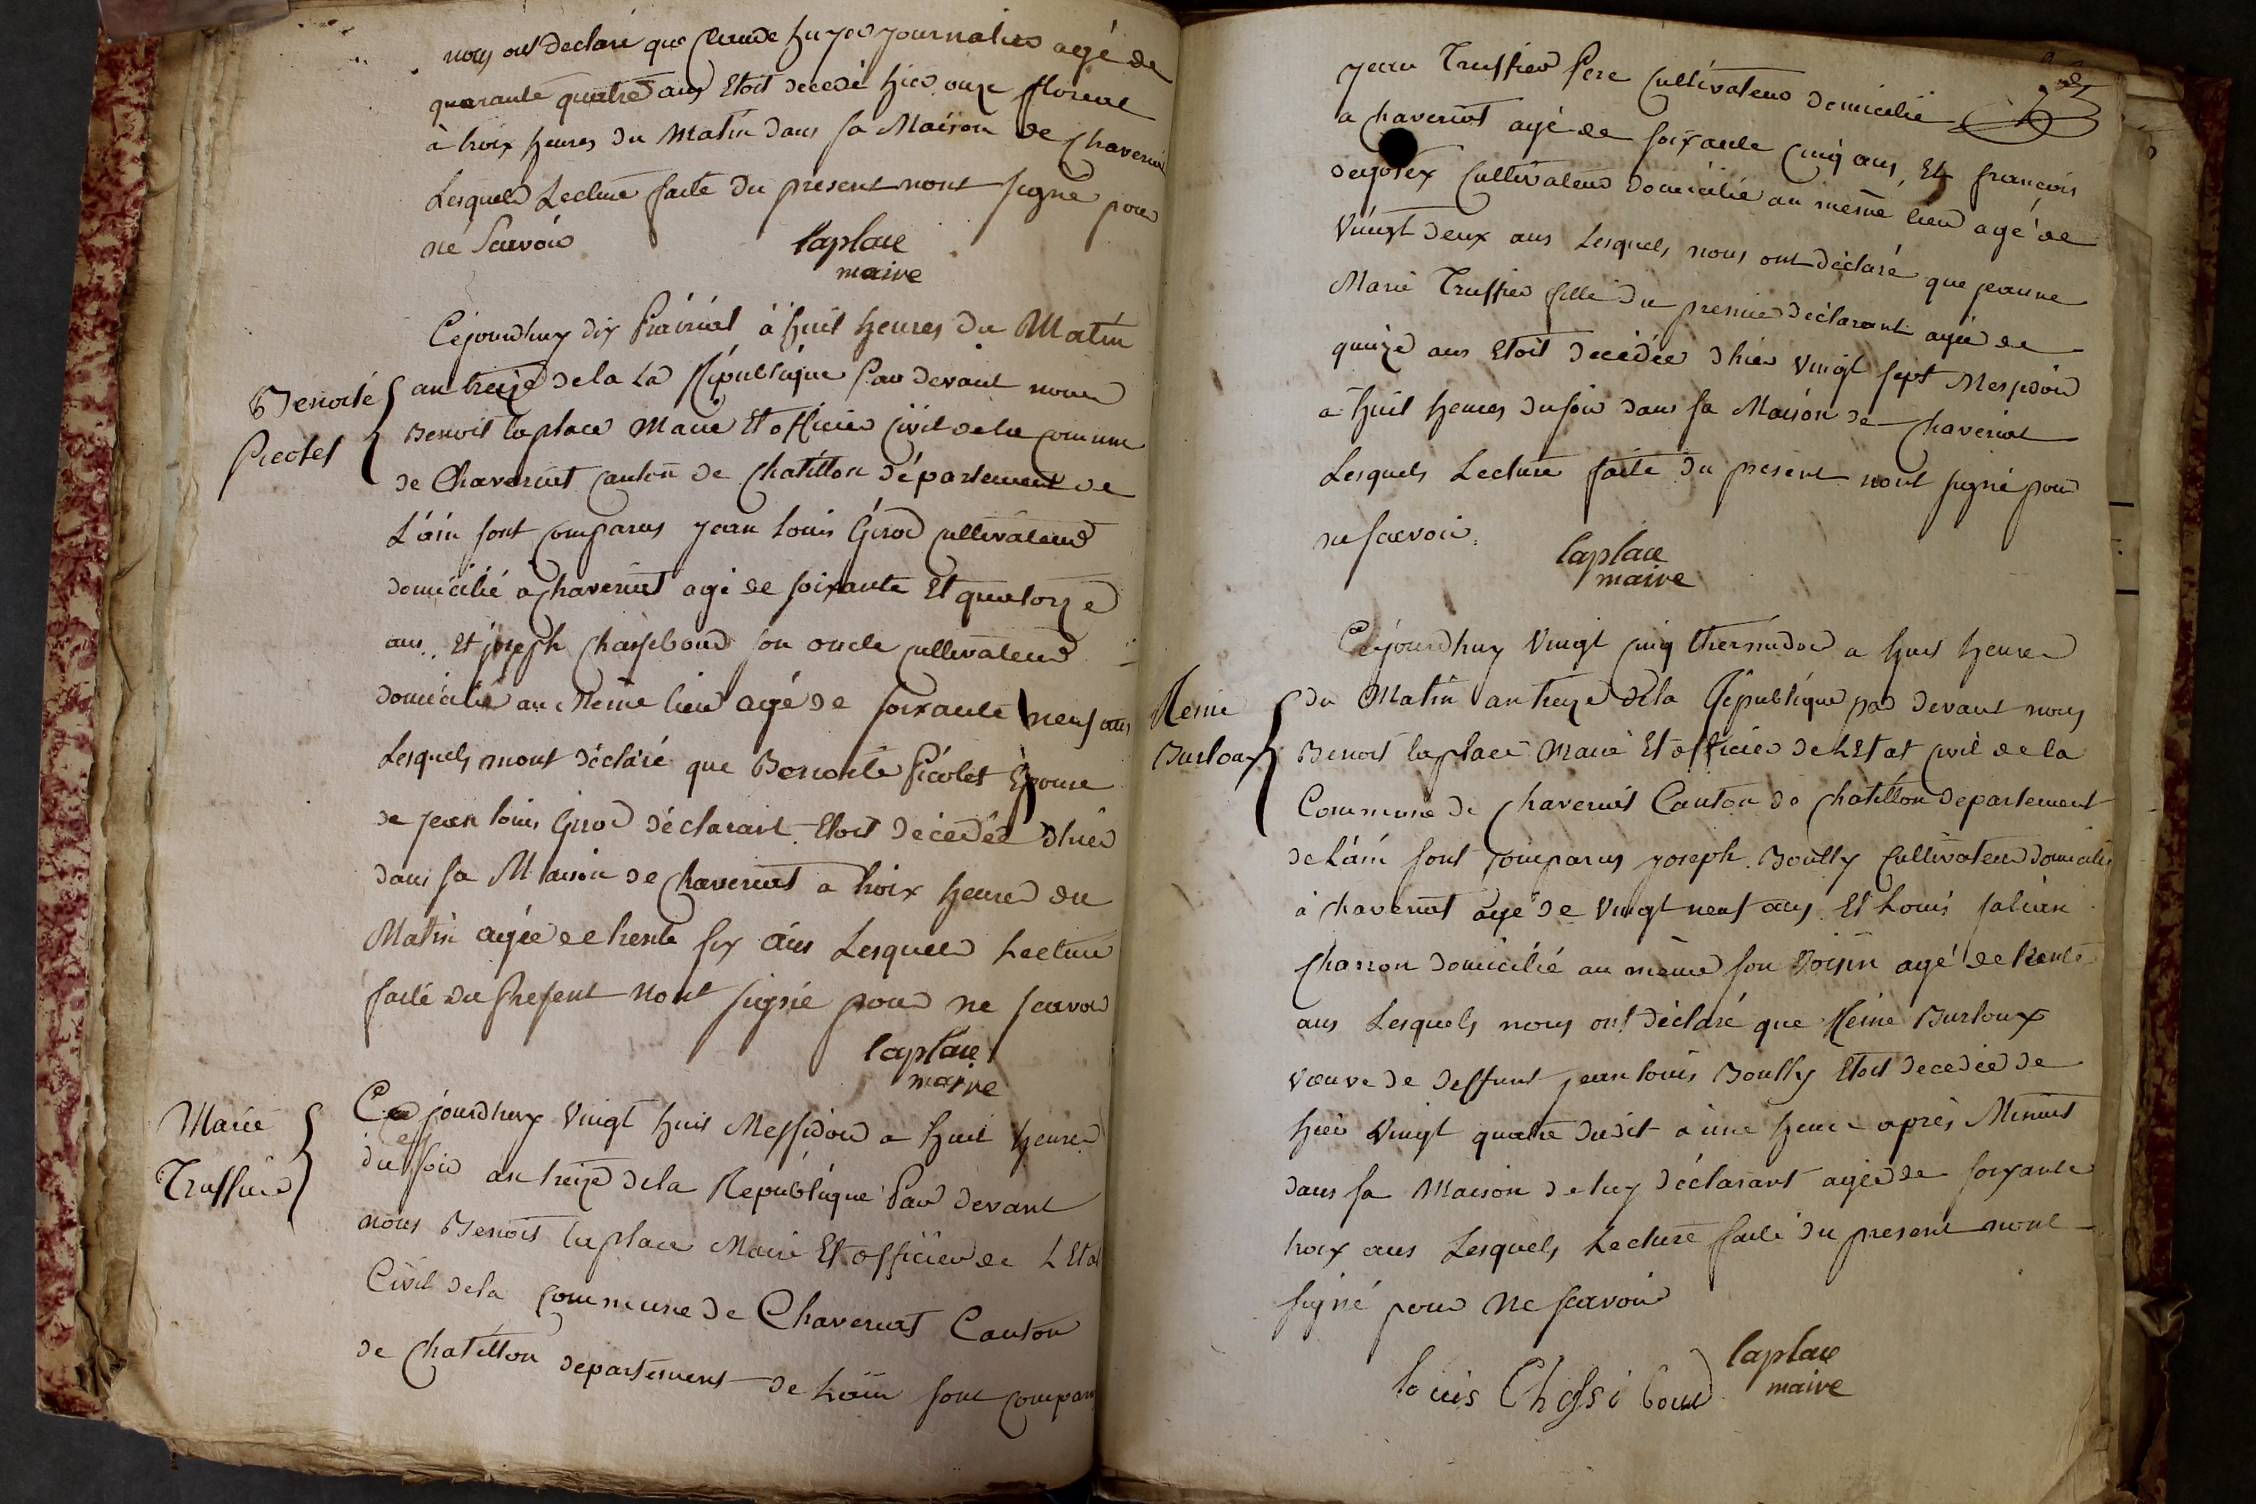 nous ont declaré que Claude huyer journalier agé de
quarante quatre ans Etoit decedé hier onze floreal
à troix heures du Matin dans sa Maison de Chaveriat
Lesquels Lecture faite du present nont signé pour
né Scavoir
laplace
maire
Cejourdhuy dix Prairial à huit heures du Matin
Benoite
Picolet
an treize dela La République Par devant nous
Benoit laplace Maire Et officier Civil dela commune
de Chaveriat Canton de Chatillon département de
L'ain sont comparus jean louis Girod cultivateur
domicilié a Chaveriat agé de soixante Et quatorze
ans. Et joseph Chassiboud son oncle cultivateur
domicilié au Même lieu agé de soixante neuf ans
Lesquels mont déclaré que Benoite Picolet Epouse
de jean louis Girod déclarant Etoit decedée d'hier
dans sa Maison de Chaveriat a troix heures du
Matin agée de trente six ans Lesquels Lecture
faite du Présent Nont signé pour ne scavoir
laplace
maire
Marie
Truffier
Ce jourdhuy Vingt huit Messidor a huit heures
du soir an treize dela République Par devant
nous Benoit laplace Maire Et officier de LEtat
Civil dela commune de Chaveriat Canton
de Chatillon departement de Lain sont comparu
jean Truffier Pere Cultivateur domicilié
a Chaveriat agé de soixante cinq ans, Et françois
cultivateur domicilié au même lieu agé de
Vingt deux ans Lesquels nous ont déclaré que jeanne
Marie Truffier fille du premier déclarant agée de
quinze ans Etoit decedée d'hier Vingt sept Messidor
a huit heures du soir dans sa Maison de Chaveriat
Lesquels Lecture faite du présent nont signé pour
ne scavoir.
laplace
maire
Cejourdhuy Vingt cinq thermidor a huit heures
Reine
Burloux
du Matin an treize dela République par devant nous
Benoit laplace Maire Et officier de LEtat Civil de la
Commune de Chaveriat Canton de Chatillon departement
de L'ain sont comparus joseph Boully Cultivateur domicilié
à Chaveriat agé de Vingt neuf ans Et Louis
Charron domicilié au même son Voisin agé de trente
ans Lesquels nous ont déclaré que Reine Burloux
Veuve de deffunt jean louis Boully Etoit decedée de
hier Vingt quatre dudit a une heure après Minuit
dans sa Maison de luy déclarant agée de soixante
troix ans Lesquels Lecture faite du present nont
signé pour Ne scavoir
laplace
maire
louis Chassiboud